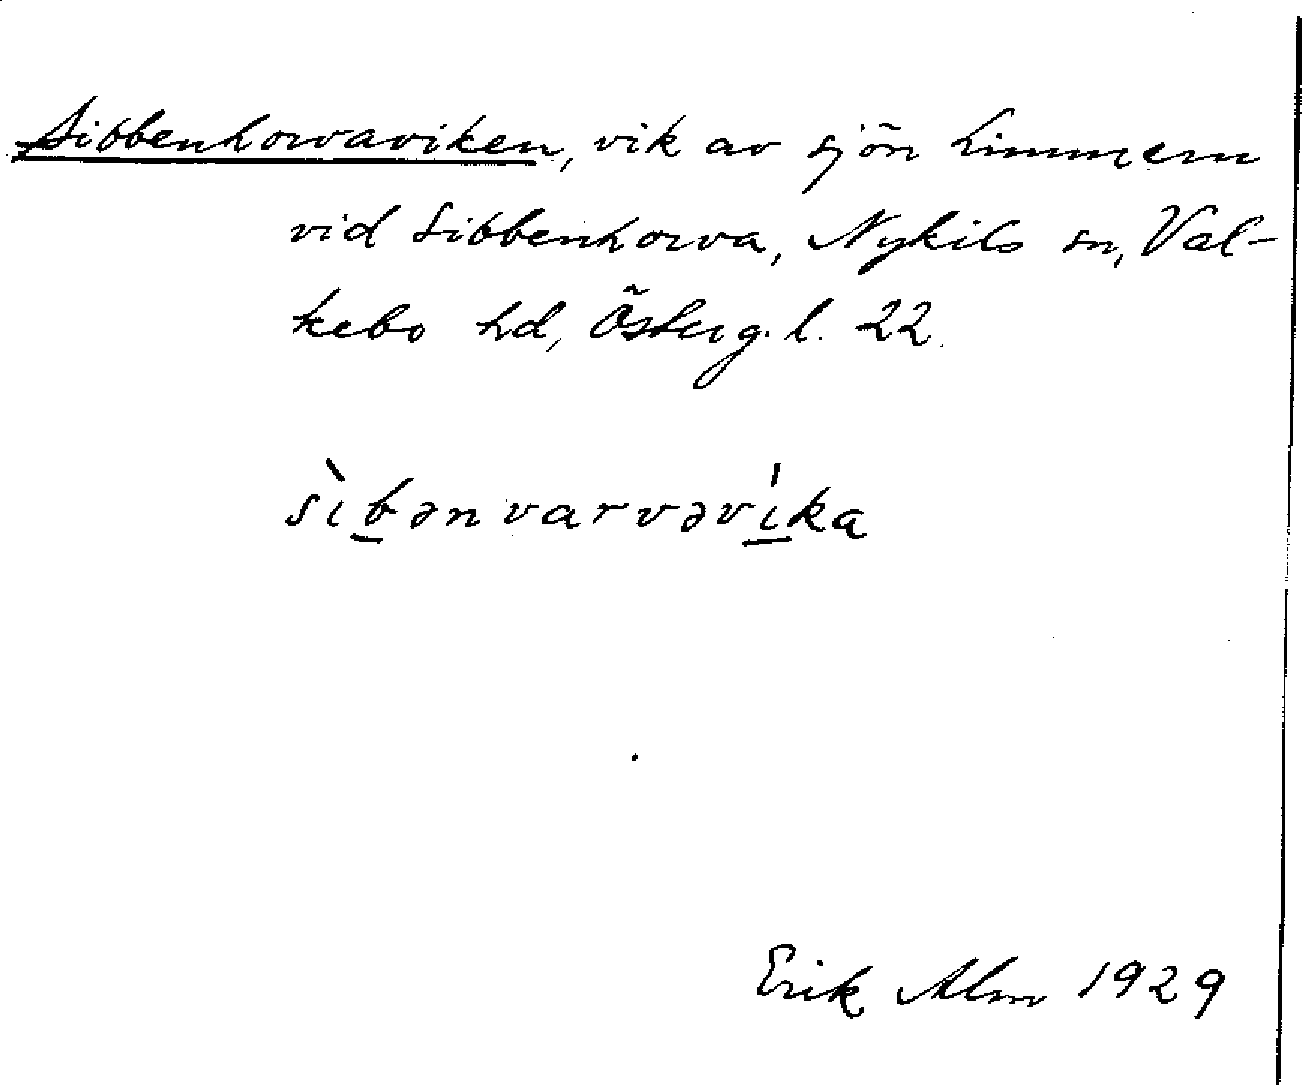 Sibbenhorvaviken, vik av sjön Limmern
vid Sibbenhorva, Nykils sn, Val-
kebo hd, Österg. l. 22.
sìbənvarvəvíka
Erik Alm 1929